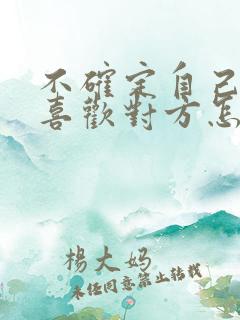 不確定自己
喜歡對方怎
楊大妈
未任同意禁止转载